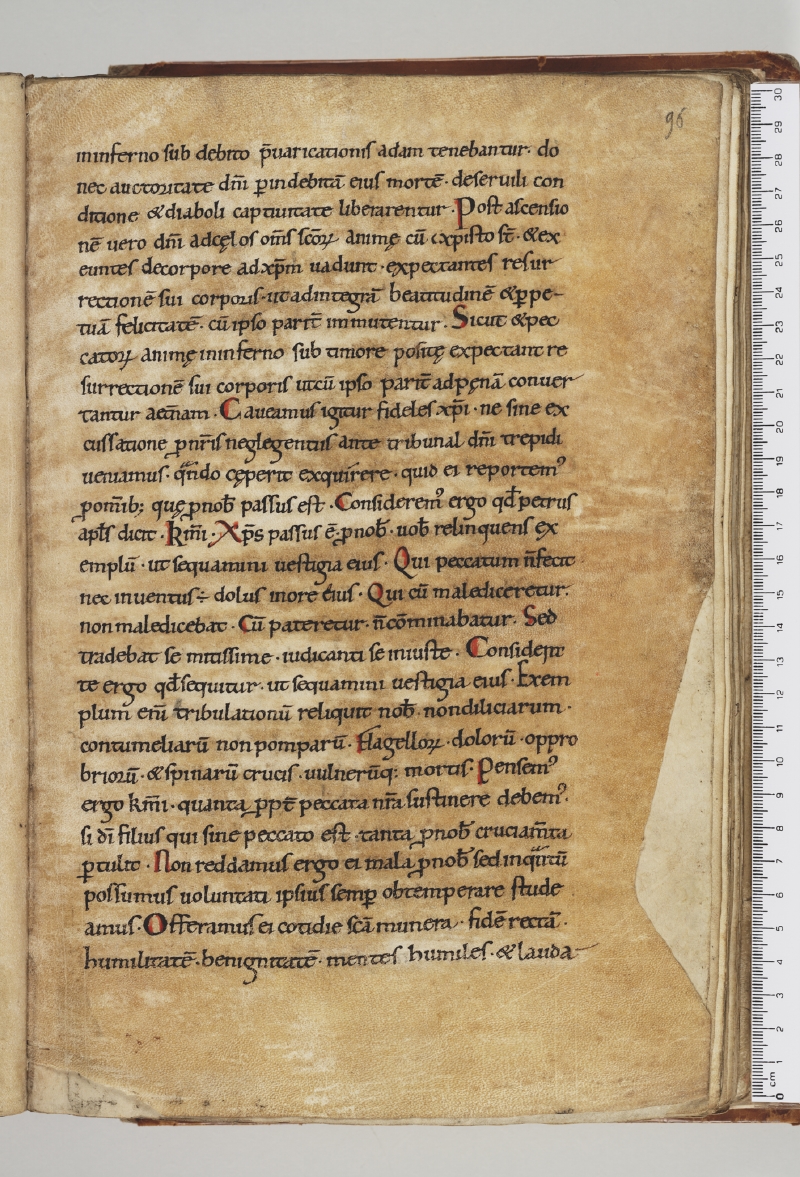 96
ininferno sub debito p̄uaricationis adam tenebantur. do
nec auctoritate dn̄i ꝑ indebitā eius mortē. deseruili con
ditione &diaboli captiuitate liberarentur. Post ascensio
nē uero dn̄i adcęlos om̄s sc̄oꝝ animę cū cxpisto st̄. &ex
euntes decorpore adxp̄m uadunt. expectantes resur
rectionē sui corporis. ut adintegrā beatitudinē &ꝑpe-
tuā felicitatē. cū ipso parit̄ inmutentur. Sicut &pec
catoꝝ animę ininferno sub timore positę expectant re
surrectionē sui corporis utcū ipso parit̄ adpęnā conuer
tantur aet̄nam. Caueamus igitur fideles xp̄i. ne sine ex
cussatione ꝓ nr̄is neglegentiis ante tribunal dn̄i trepidi
ueniamus. qn̄do cęperit exquirere. quid ei reportemꝰ
ꝓ om̄ib; quę ꝓ nob̄ passus est. Consideremꝰ ergo qđ petrus
apl̄s dicit. kr̄mi. Xp̄s passus ē ꝓ nob̄. uob̄ relinquens ex
emplū. ut sequamini uestigia eius. Qui peccatum n̄ fecit
nec inuentus ÷ dolus inore eius. Qui cū malediceretur.
non maledicebat. Cū pateretur. n̄ cōminabatur. Sed
tradebat se mitissime. iudicanti se iniuste. Considera
te ergo qđ sequitur. ut sequamini uestigia eius. Exem
plum enī tribulationū reliquit nob̄. nondiliciarum.
contumeliarū non pomparū. Flagelloꝝ. dolorū. oppro
briorū. &spinarū crucis. uulnerūq; mortis. Pensemꝰ
ergo kr̄mi. quanta ꝓpt̄ peccata nr̄a sustinere debemꝰ.
si dī filius qui sine peccato est. tanta ꝓ nob̄ cruciam̄ta
ꝑtulit. Non reddamus ergo ei mala ꝓ nob̄ sed inqn̄tū
possumus uoluntati ipsius semꝑ obtemperare stude
amus. Offeramus ei cotidie sc̄a munera. fidē rectā.
humilitatē. benignitatē. mentes humiles. &lauda